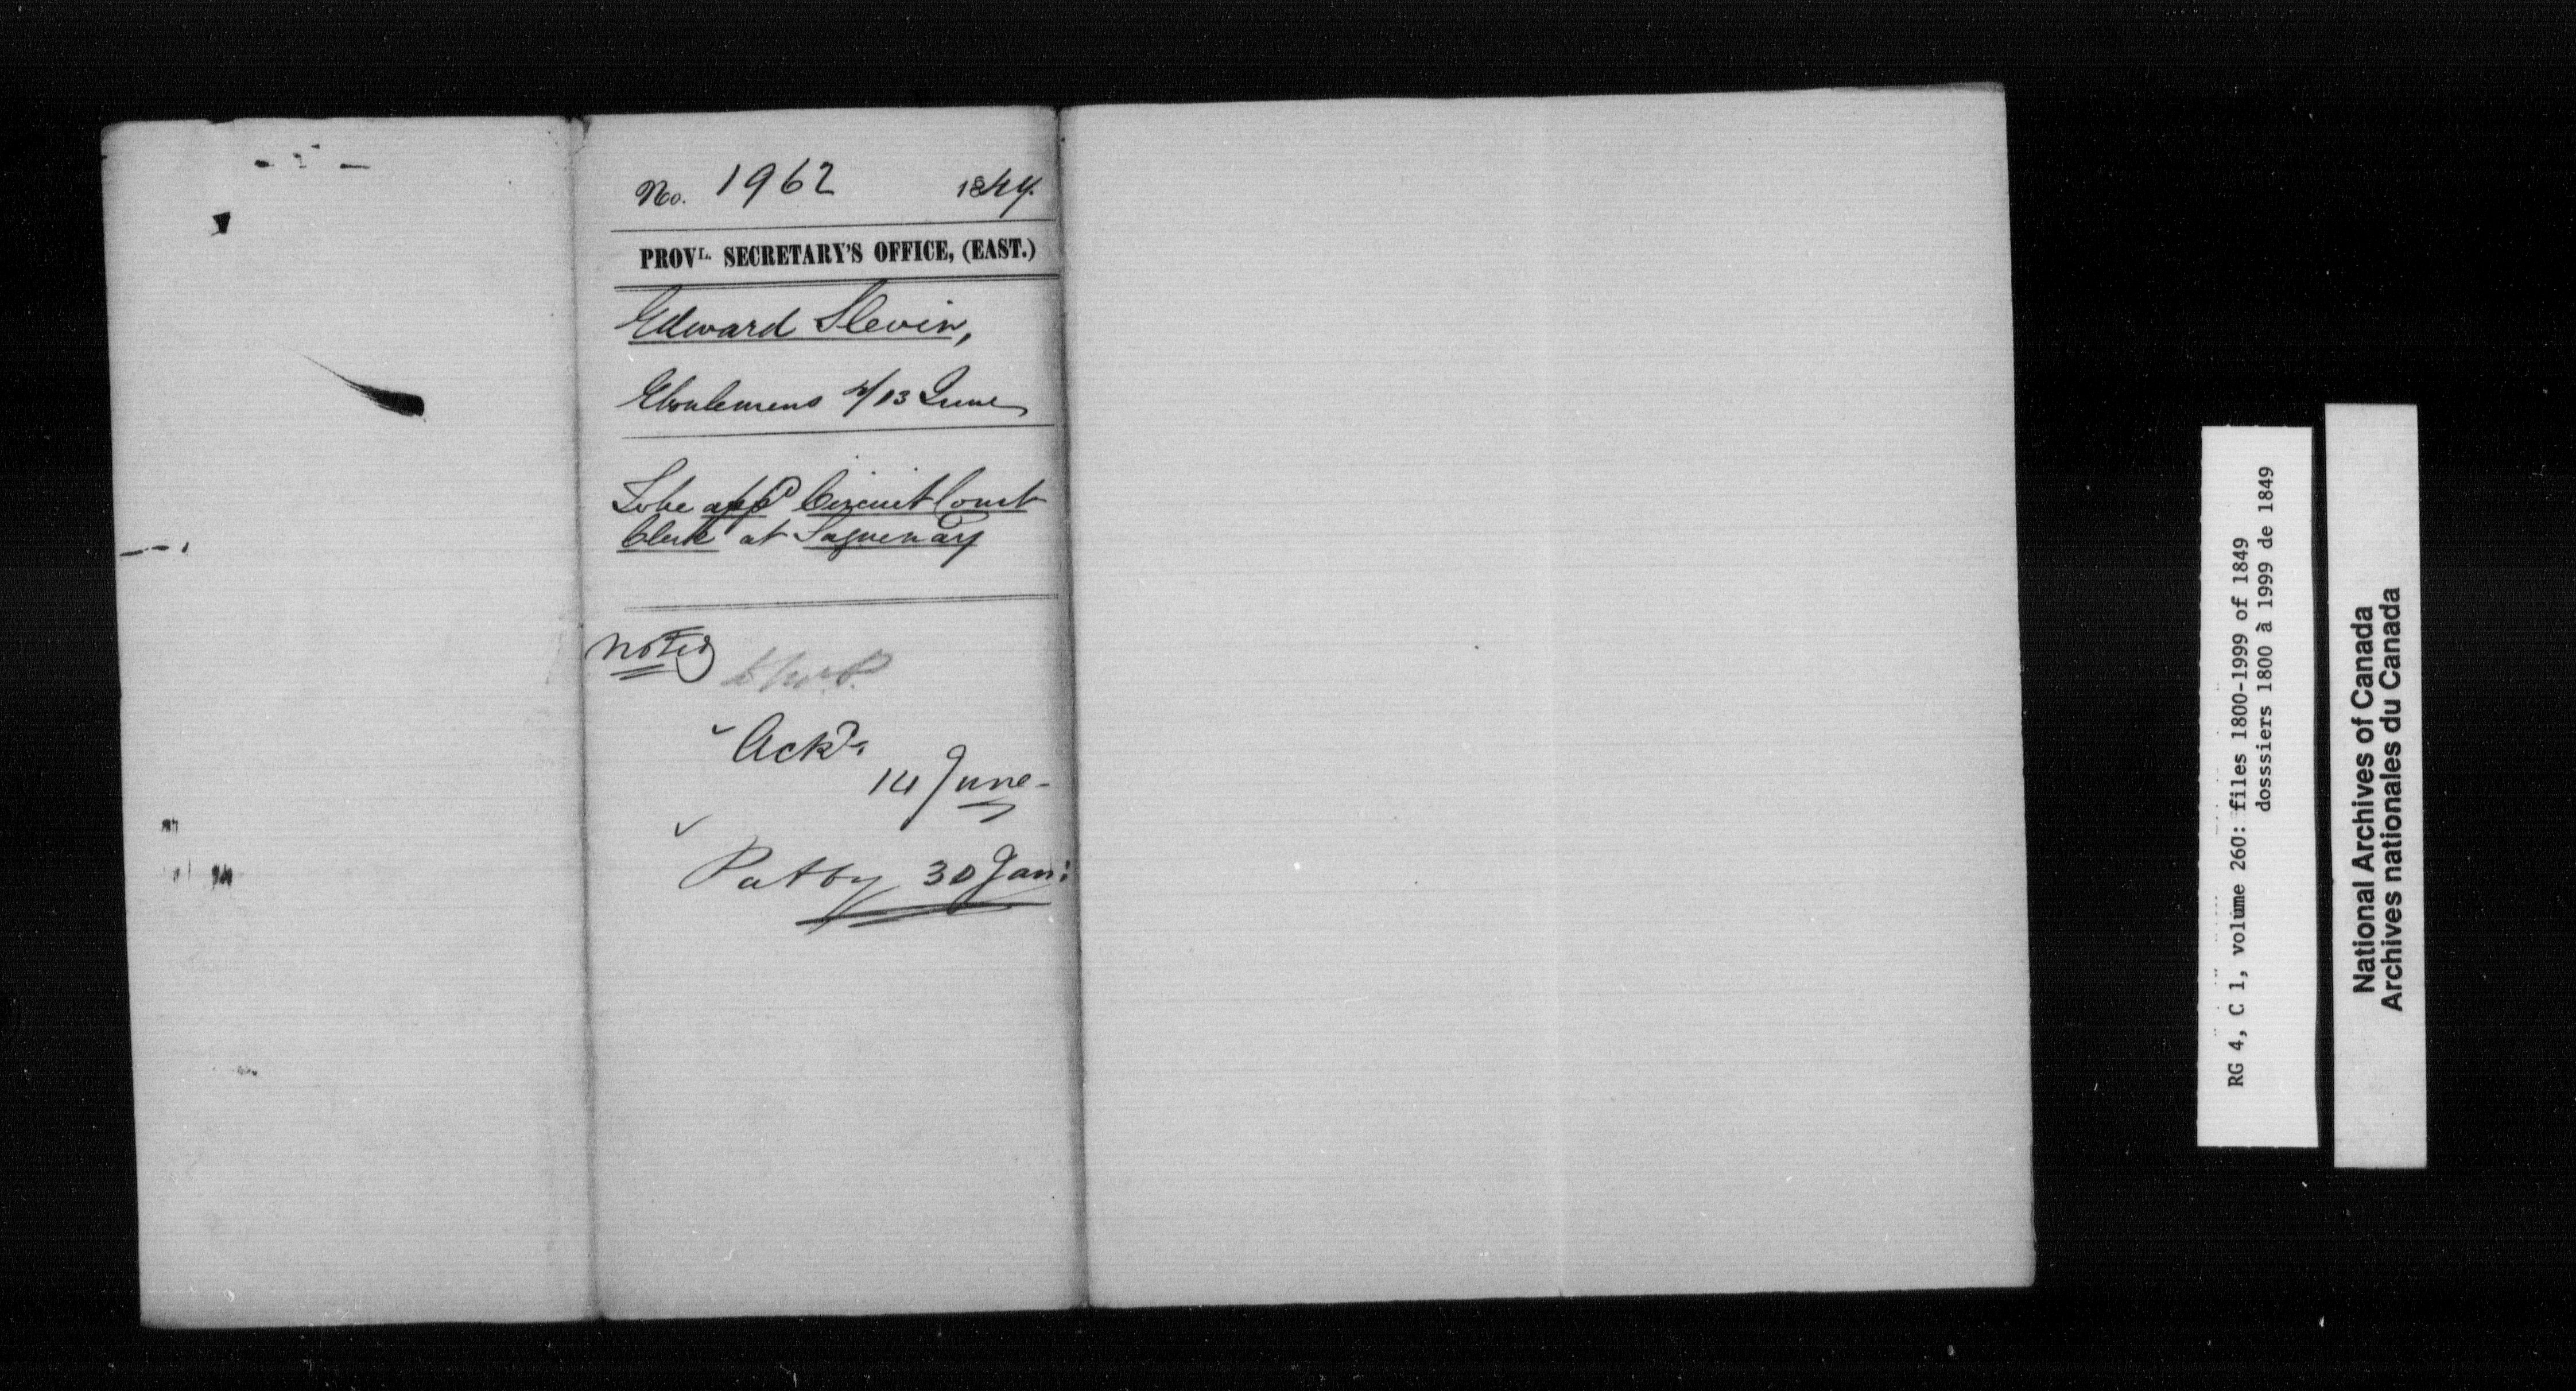 No. 1962 1849.
PROVL. SECRETARY'S OFFICE, (EAST.)
Edward Slevin,
Eboulemens 4/13 June
To be appd Circuit Court
Clerk at Saguenay
noted
Ackd.
14 June-
30 Jan:
RG 4, C 1, volume 260: files 1800-1999 of 1849
dosssiers 1800 à 1999 de 1849
National Archives of Canada
Archives nationales du Canada